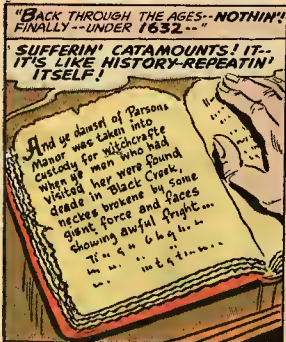 "BACK THROUGH THE AGES--NOTHIN'!
FINALLY--UNDER 1632--"
SUFFERIN' CATAMOUNTS! IT--
IT'S LIKE HISTORY-REPEATIN'
ITSELF!
And ye damsel of Parsons
Manor was taken into
custody for witchcrafte
When ye men who had
visited her were found
deade in Black Creek,
neckes brokene by some
giant force and faces
showing awful fright...